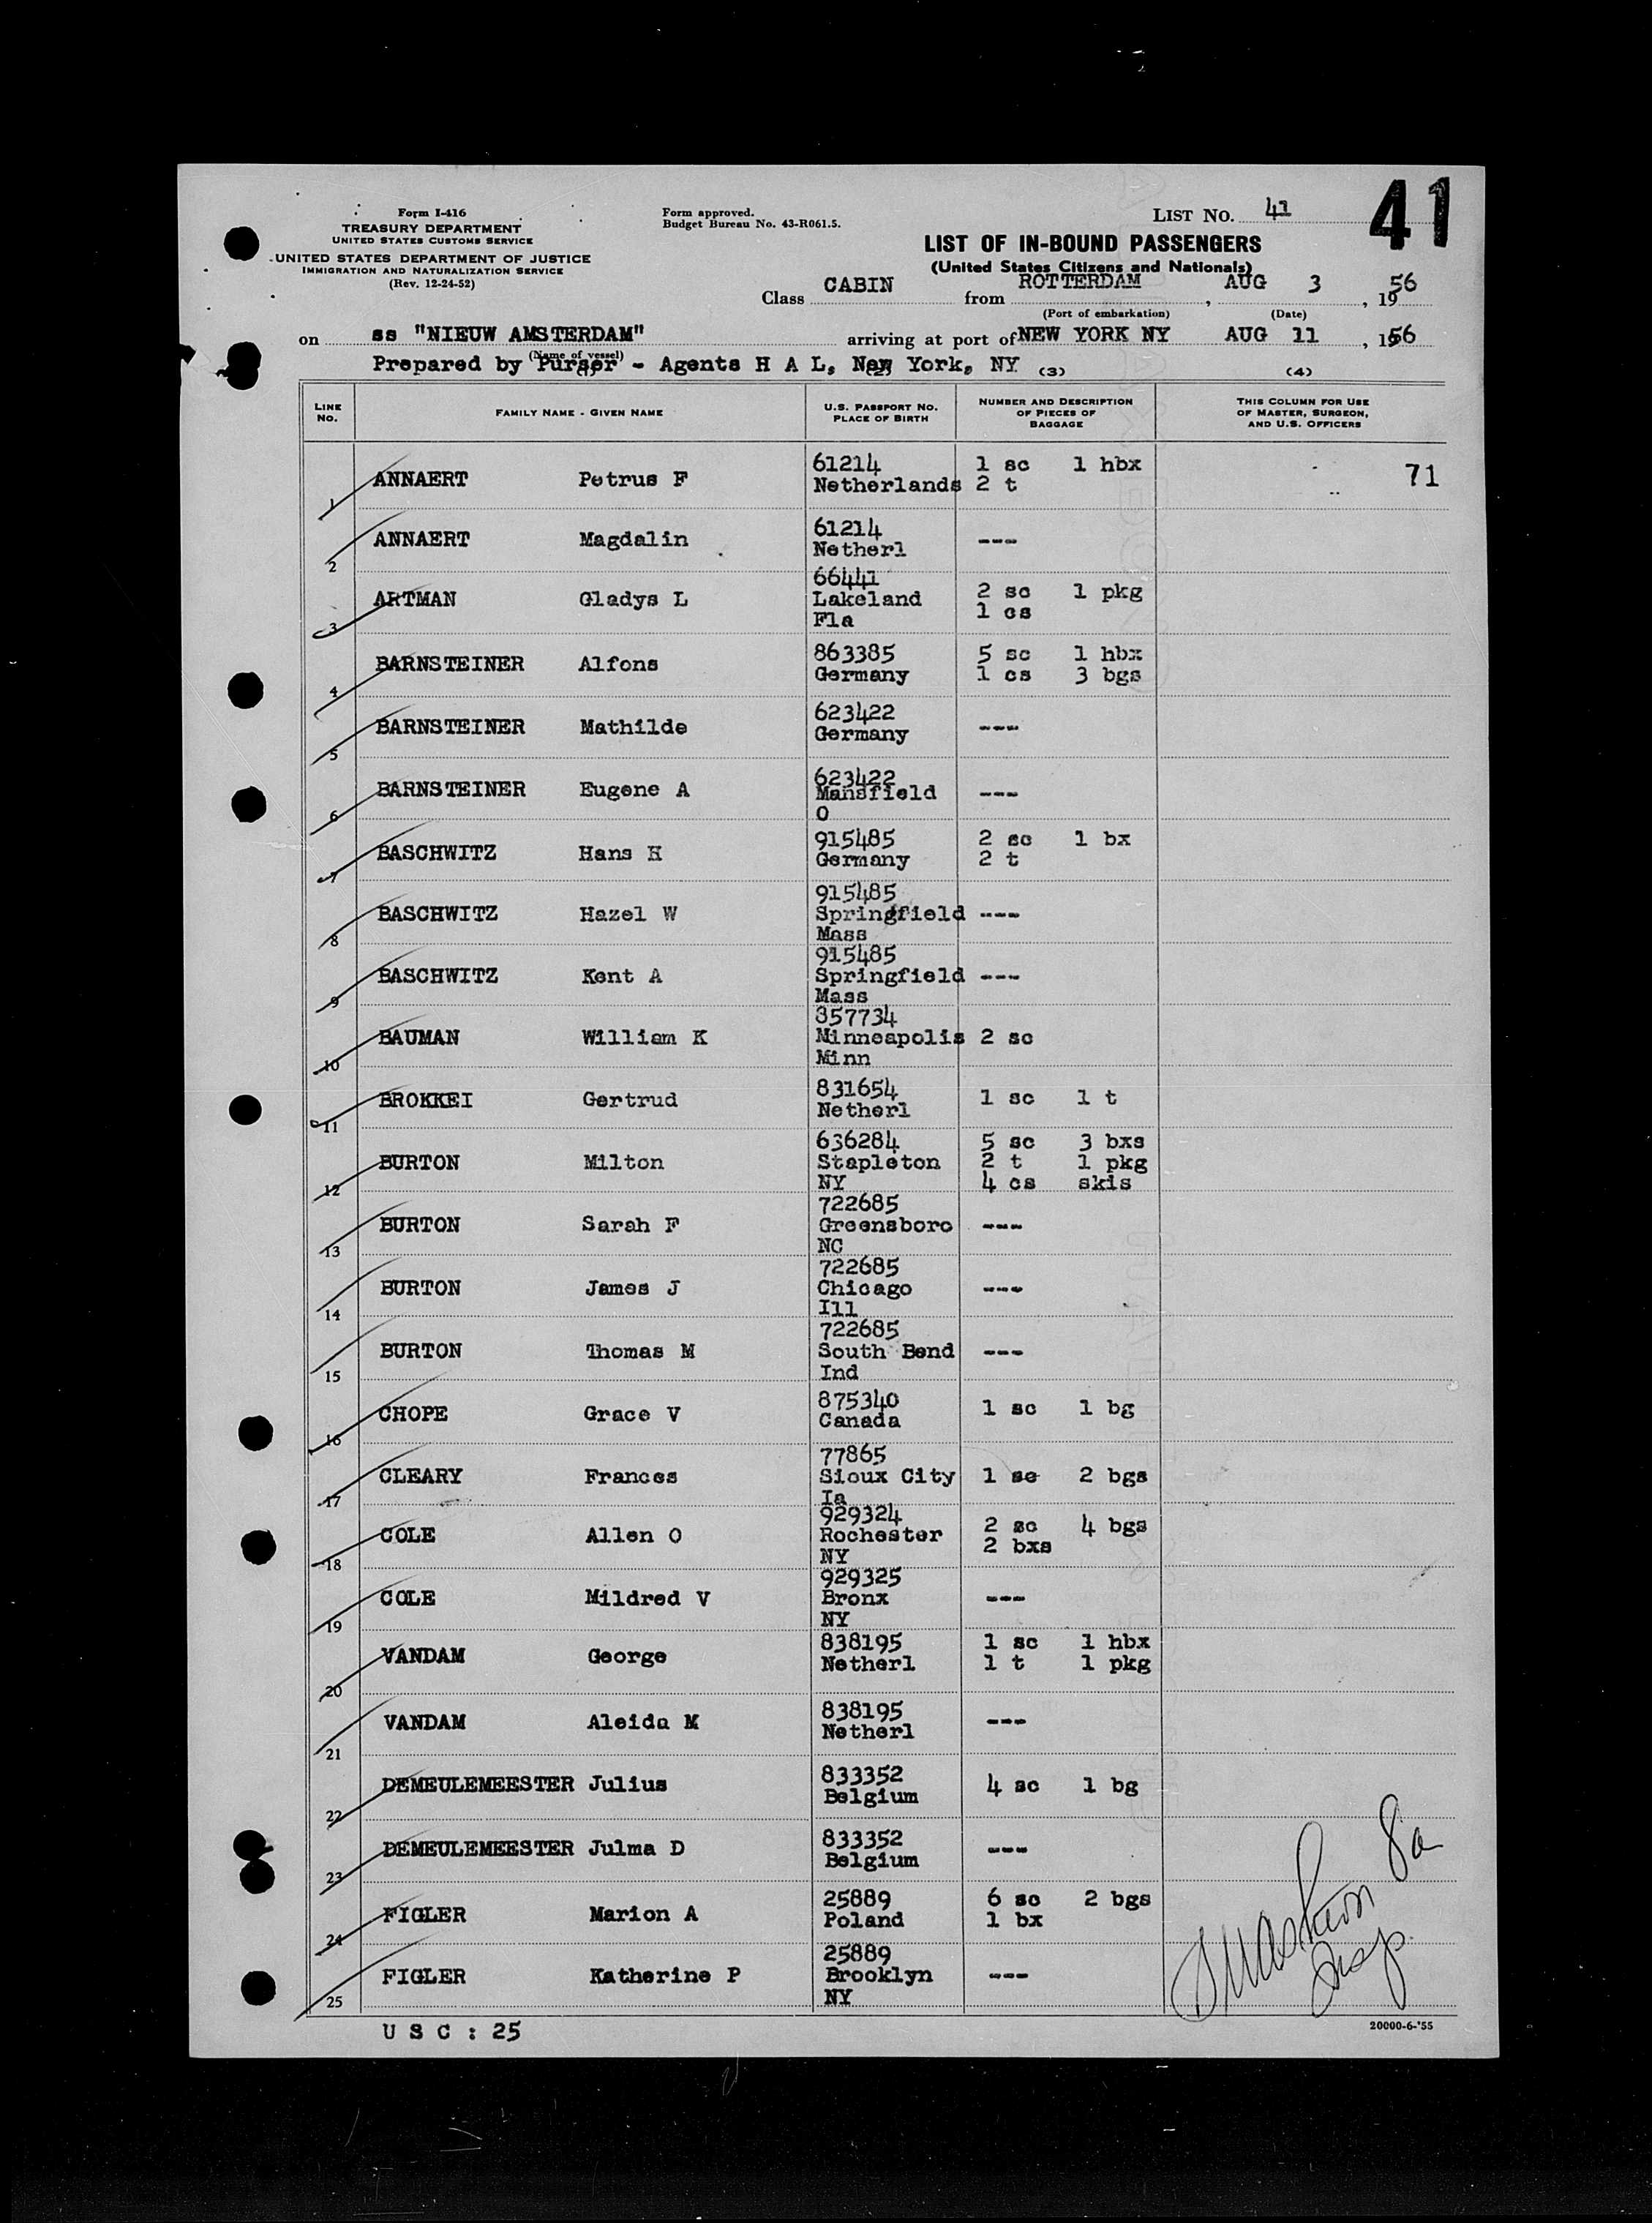 41
Form I-416
TREASURY DEPARTMENT
UNITED STATES CUSTOMS SERVICE
UNITED STATES DEPARTMENT OF JUSTICE
IMMIGRATION AND NATURALIZATION SERVICE
(Rev. 12-24-52)
Form approved.
Budget Bureau No. 43-R061.5.
LIST NO. 41
LIST OF IN-BOUND PASSENGERS
(United States Citizens and Nationals)
Class CABIN from ROTTERDAM, AUG 3, 1956
(Port of embarkation) (Date)
on ss "NIEUW AMSTERDAM" arriving at port of NEW YORK NY AUG 11, 1956
(Name of vessel)
Prepared by Purser - Agents H A L, New York, NY
(1) (2) (3) (4)
LINE NO. FAMILY NAME - GIVEN NAME U.S. PASSPORT NO. PLACE OF BIRTH NUMBER AND DESCRIPTION OF PIECES OF BAGGAGE THIS COLUMN FOR USE OF MASTER, SURGEON, AND U.S. OFFICERS
1 ANNAERT Petrus F 61214 Netherlands 1 sc 1 hbx 2 t 71
2 ANNAERT Magdalin 61214 Netherl ---
3 ARTMAN Gladys L 66441 Lakeland Fla 2 sc 1 pkg 1 cs
4 BARNSTEINER Alfons 863385 Germany 5 sc 1 hbx 1 cs 3 bgs
5 BARNSTEINER Mathilde 623422 Germany ---
6 BARNSTEINER Eugene A 623422 Mansfield O ---
7 BASCHWITZ Hans H 915485 Germany 2 sc 1 bx 2 t
8 BASCHWITZ Hazel W 915485 Springfield Mass ---
9 BASCHWITZ Kent A 915485 Springfield Mass ---
10 BAUMAN William K 857734 Minneapolis Minn 2 sc
11 BROKKEI Gertrud 831654 Netherl 1 sc 1 t
12 BURTON Milton 636284 Stapleton NY 5 sc 3 bxs 2 t 1 pkg 4 cs skis
13 BURTON Sarah F 722685 Greensboro NC ---
14 BURTON James J 722685 Chicago Ill ---
15 BURTON Thomas M 722685 South Bend Ind ---
16 CHOPE Grace V 875340 Canada 1 sc 1 bg
17 CLEARY Frances 77865 Sioux City Ia 1 sc 2 bgs
18 COLE Allen O 929324 Rochester NY 2 sc 4 bgs 2 bxs
19 COLE Mildred V 929325 Bronx NY ---
20 VANDAM George 838195 Netherl 1 sc 1 hbx 1 t 1 pkg
21 VANDAM Aleida M 838195 Netherl ---
22 DEMEULEMEESTER Julius 833352 Belgium 4 sc 1 bg
23 DEMEULEMEESTER Julma D 833352 Belgium ---
24 FIGLER Marion A 25889 Poland 6 sc 2 bgs 1 bx
25 FIGLER Katherine P 25889 Brooklyn NY ---
Insp.
U S C : 25
20000-6-'55